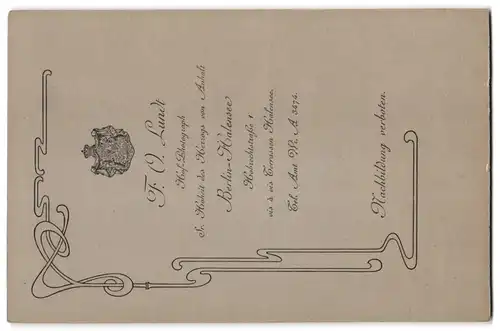 F. O. Lundt
Hof-Photograph
Sr. Hoheit des Herzogs von Anhalt
Berlin-Halensee
Hobrechtstraße 1
vis à vis Terrassen Halensee.
Tel. Amt Wi. A 3474.
Nachbildung verboten.